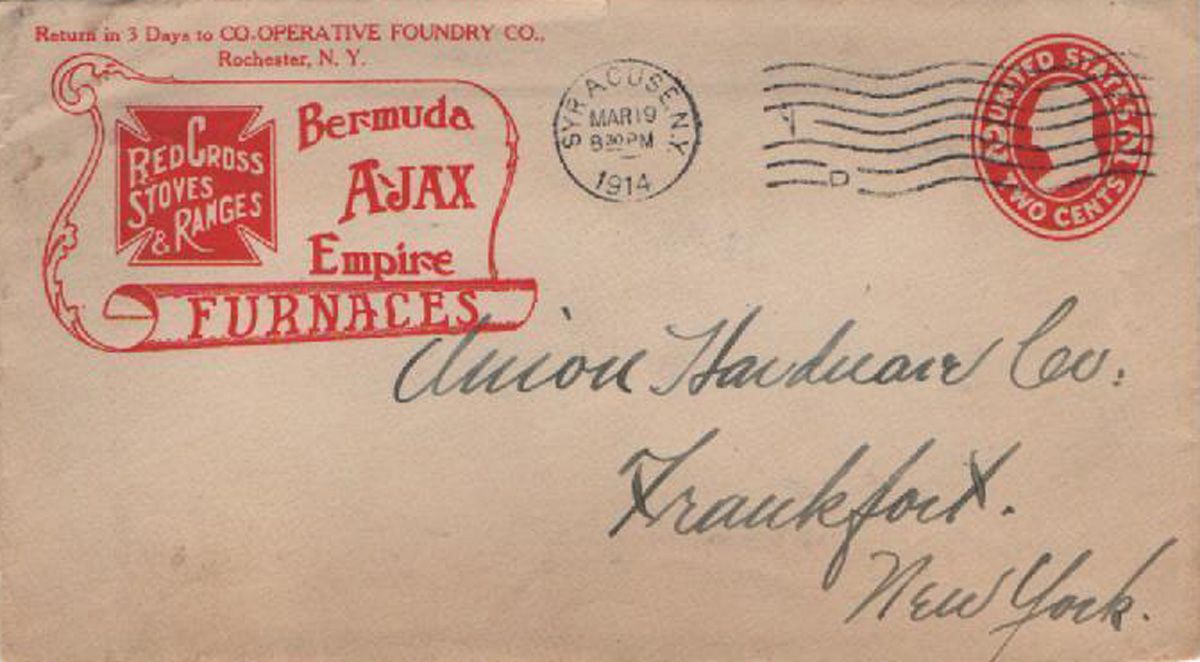 Return in 3 Days to CO-OPERATIVE FOUNDRY CO.,
Rochester, N. Y.
RED CROSS
STOVES
& RANGES
Bermuda
AJAX
Empire
FURNACES
SYRACUSE N.Y.
MAR 19
8 30 PM
1914
D
UNITED STATES
2 2
TWO CENTS
Union Hardware Co.
Frankfort.
New York.